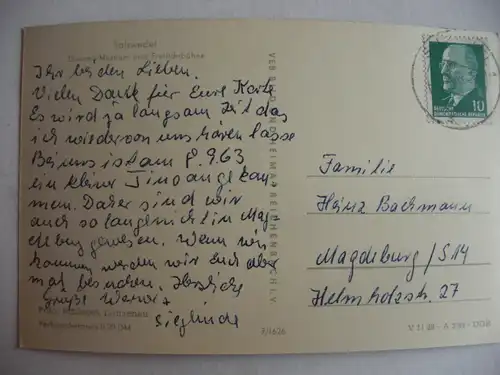 Salzwedel
Danneil-Museum und Freilichtbühne
Ihr beiden Lieben.
Vielen Dank für Eure Karte
Es wird ja langsam Zeit das
ich wieder von uns hören lasse
Bei uns ist am 8.9.63
ein kleiner Tino angekom-
men. Daher sind wir
auch so lange nicht in Mag-
deburg gewesen. Wenn wir
kommen werden wir Euch aber
mal besuchen. Herzliche
Grüße Werner +
Sieglinde
VEB BILD UND HEIMAT REICHENBACH I. V.
10
DEUTSCHE
DEMOKRATISCHE REPUBLIK
Familie
Heinz Bachmann
Magdeburg / S 14
Helmholzstr. 27